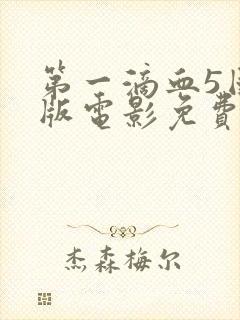 第一滴血5
版电影免費
杰森梅尔